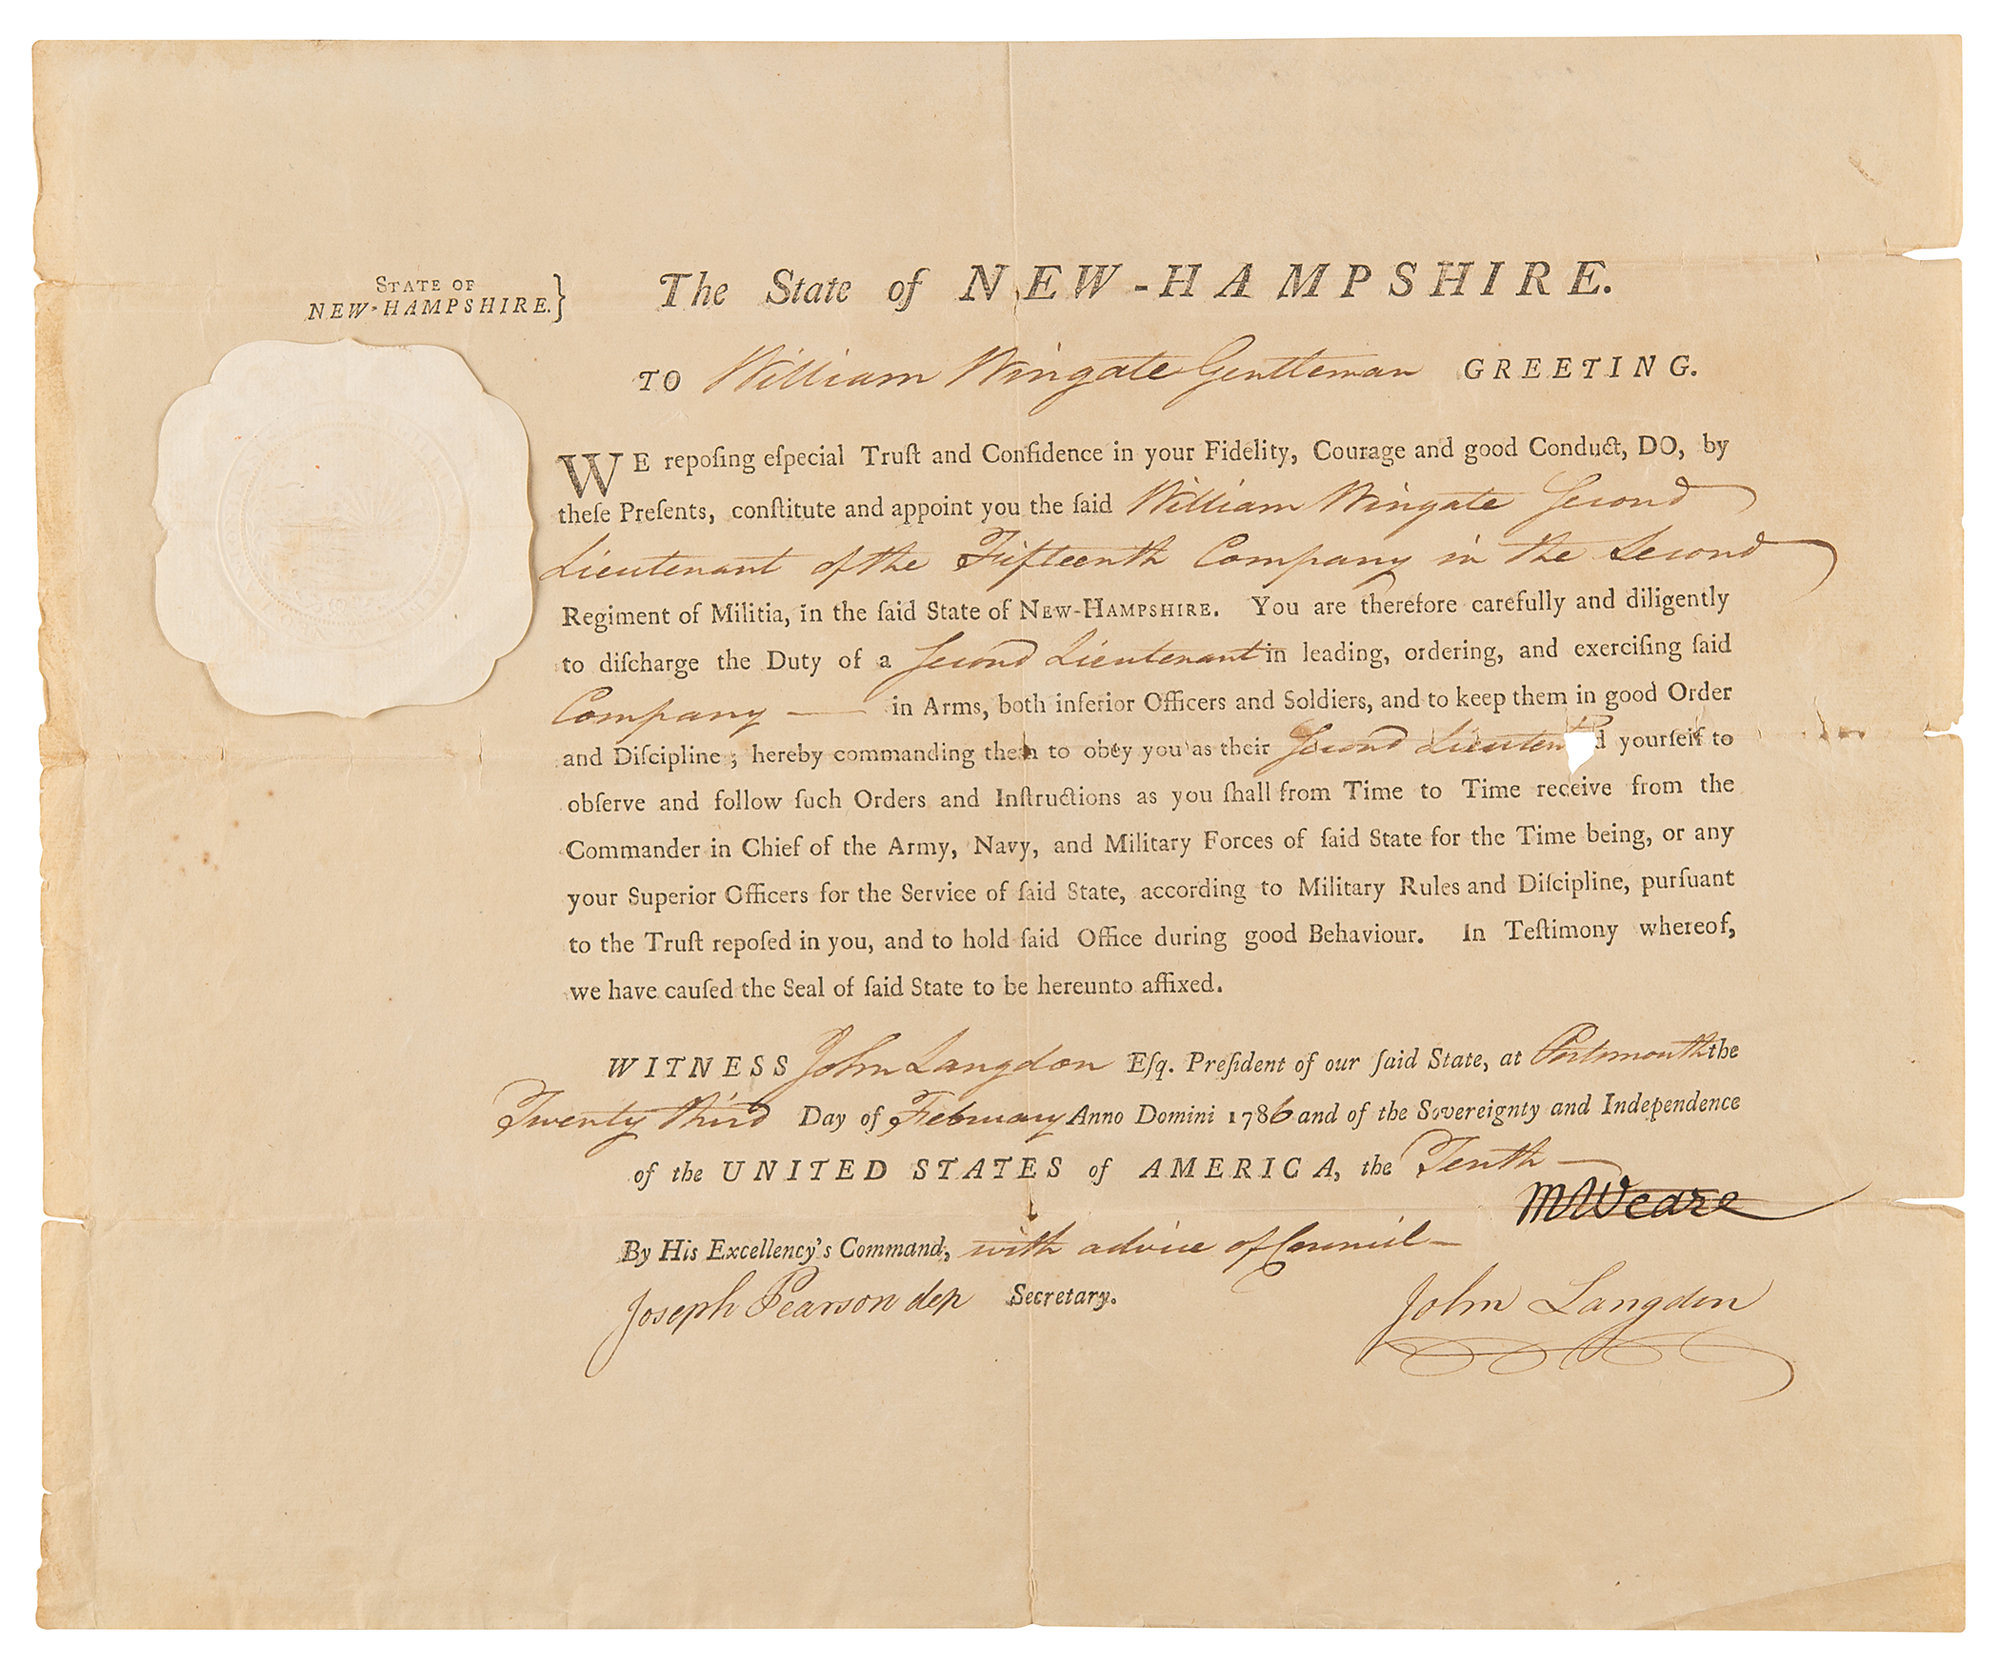 STATE OF
NEW-HAMPSHIRE.}
The State of NEW-HAMPSHIRE.
TO William Wingate Gentleman GREETING.
WE repoſing eſpecial Truſt and Confidence in your Fidelity, Courage and good Conduct, DO, by
theſe Preſents, conſtitute and appoint you the ſaid William Wingate Second
Lieutenant of the Fifteenth Company in the Second
Regiment of Militia, in the ſaid State of NEW-HAMPSHIRE. You are therefore carefully and diligently
to diſcharge the Duty of a Second Lieutenant in leading, ordering, and exerciſing ſaid
Company — in Arms, both inferior Officers and Soldiers, and to keep them in good Order
and Diſcipline; hereby commanding them to obey you as their Second Lieuten d yourſelf to
obſerve and follow ſuch Orders and Inſtructions as you ſhall from Time to Time receive from the
Commander in Chief of the Army, Navy, and Military Forces of ſaid State for the Time being, or any
your Superior Officers for the Service of ſaid State, according to Military Rules and Diſcipline, purſuant
to the Truſt repoſed in you, and to hold ſaid Office during good Behaviour. In Teſtimony whereof,
we have cauſed the Seal of ſaid State to be hereunto affixed.
WITNESS John Langdon Eſq. Preſident of our ſaid State, at Portsmouth the
Twenty third Day of February Anno Domini 1786 and of the Sovereignty and Independence
of the UNITED STATES of AMERICA, the Tenth —
MWeare
By His Excellency's Command, with advice of Council —
Joseph Pearson dep Secretary.
John Langdon